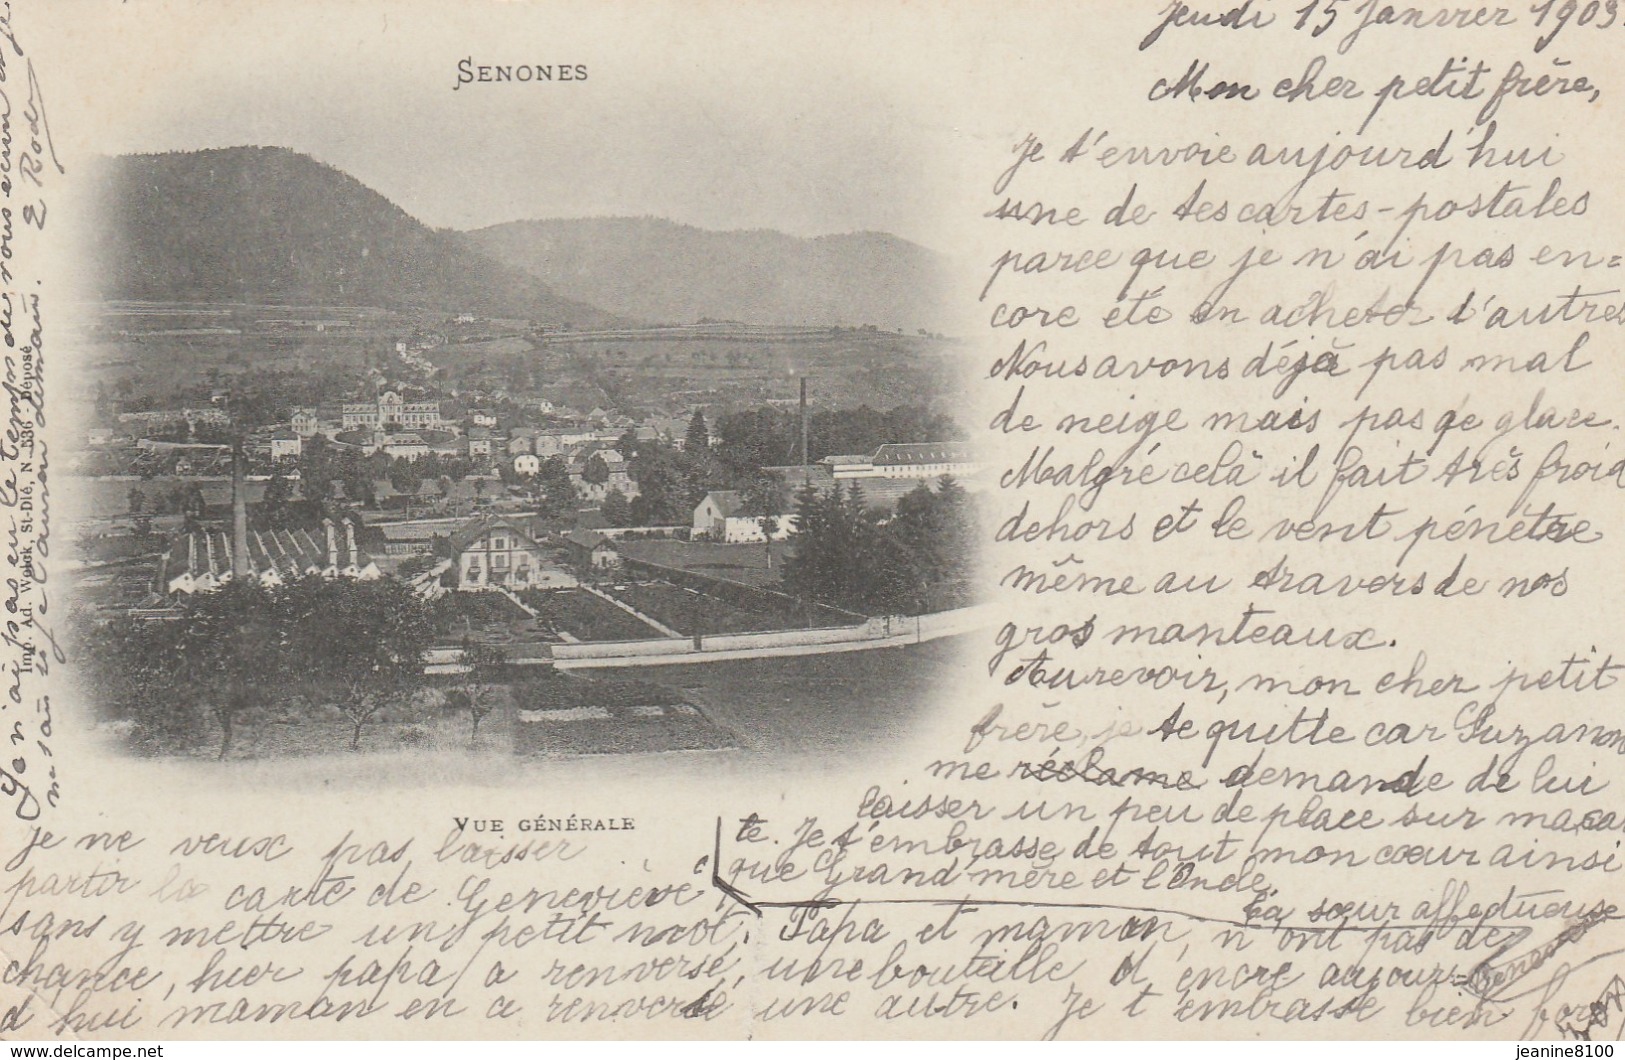 SENONES
Jeudi 15 Janvier 1903.
Mon cher petit frère,
Je t'envoie aujourd'hui
une de tes cartes-postales
parce que je n'ai pas en=
core été en acheter d'autres
Nous avons déjà pas mal
de neige mais pas de glace.
Malgré celà il fait très froid
dehors et le vent pénètre
même au travers de nos
gros manteaux.
Au revoir, mon cher petit
frère, je te quitte car Suzanne
me réclame demande de lui
laisser un peu de place sur ma car
te. Je t'embrasse de tout mon cœur ainsi
que Grand'mère et l'Oncle.
Ta sœur affectueuse
Geneviève
VUE GÉNÉRALE
Je ne veux pas laisser
partir la carte de Geneviève
sans y mettre un petit mot. Papa et maman n'ont pas de
chance, hier papa a renversé, une bouteille d'encre aujour=
d'hui maman en a renversé une autre. Je t'embrasse bien fort
Je n'ai pas eu le temps de vous écrire
Imp. Ad. Weick, St-Dié, N 536 - Déposé
demain.
jeanine8100